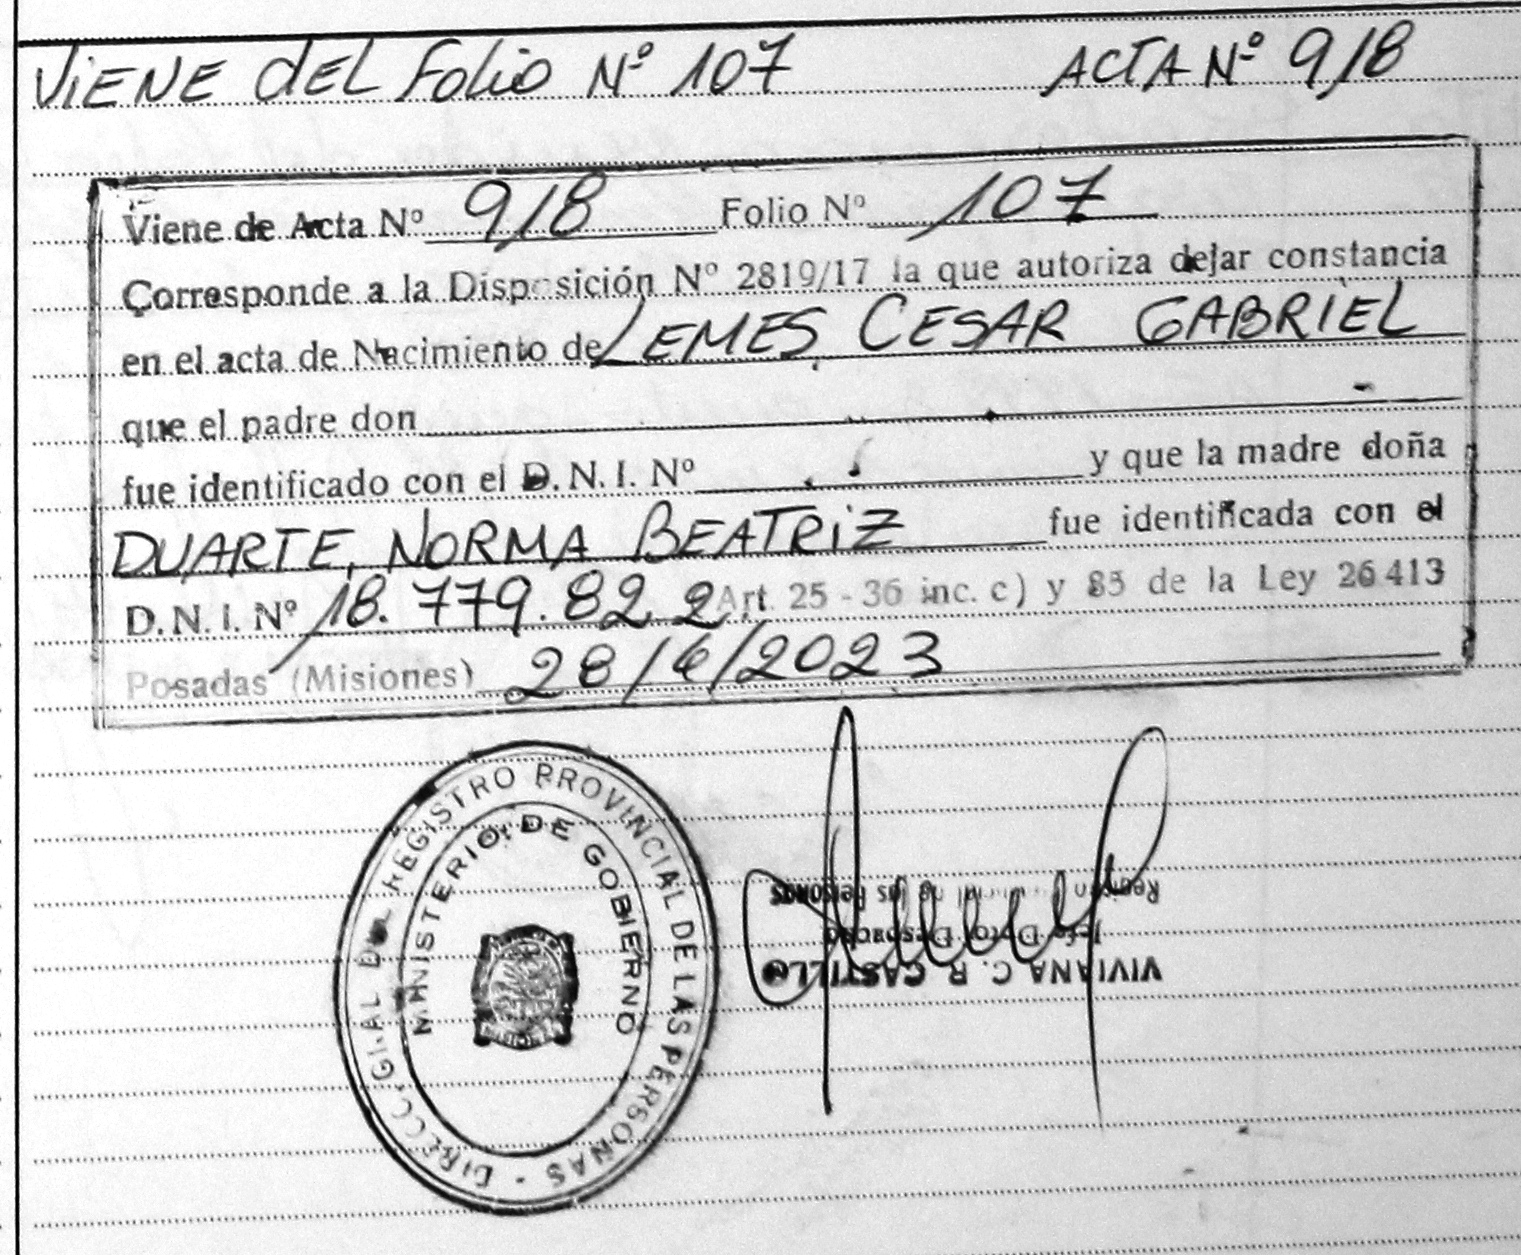 ViENE dEL Folio Nº 107 ACTA Nº 918
Viene de Acta Nº 918 Folio Nº 107
Corresponde a la Disposición Nº 2819/17 la que autoriza dejar constancia
en el acta de Nacimiento de LEMES, CESAR GABRIEL
que el padre don
fue identificado con el D.N.I. Nº y que la madre doña
DUARTE, NORMA BEATRiZ fue identificada con el
D.N.I. Nº 18.779.822 Art. 25 - 36 inc. c) y 85 de la Ley 26413
Posadas (Misiones) 28/6/2023
REGISTRO PROVINCIAL DE LAS PERSONAS
MINISTERIO DE GOBIERNO
VIVIANA C. R. CASTILLO
Jefa Dpto. Despacho
de las Personas